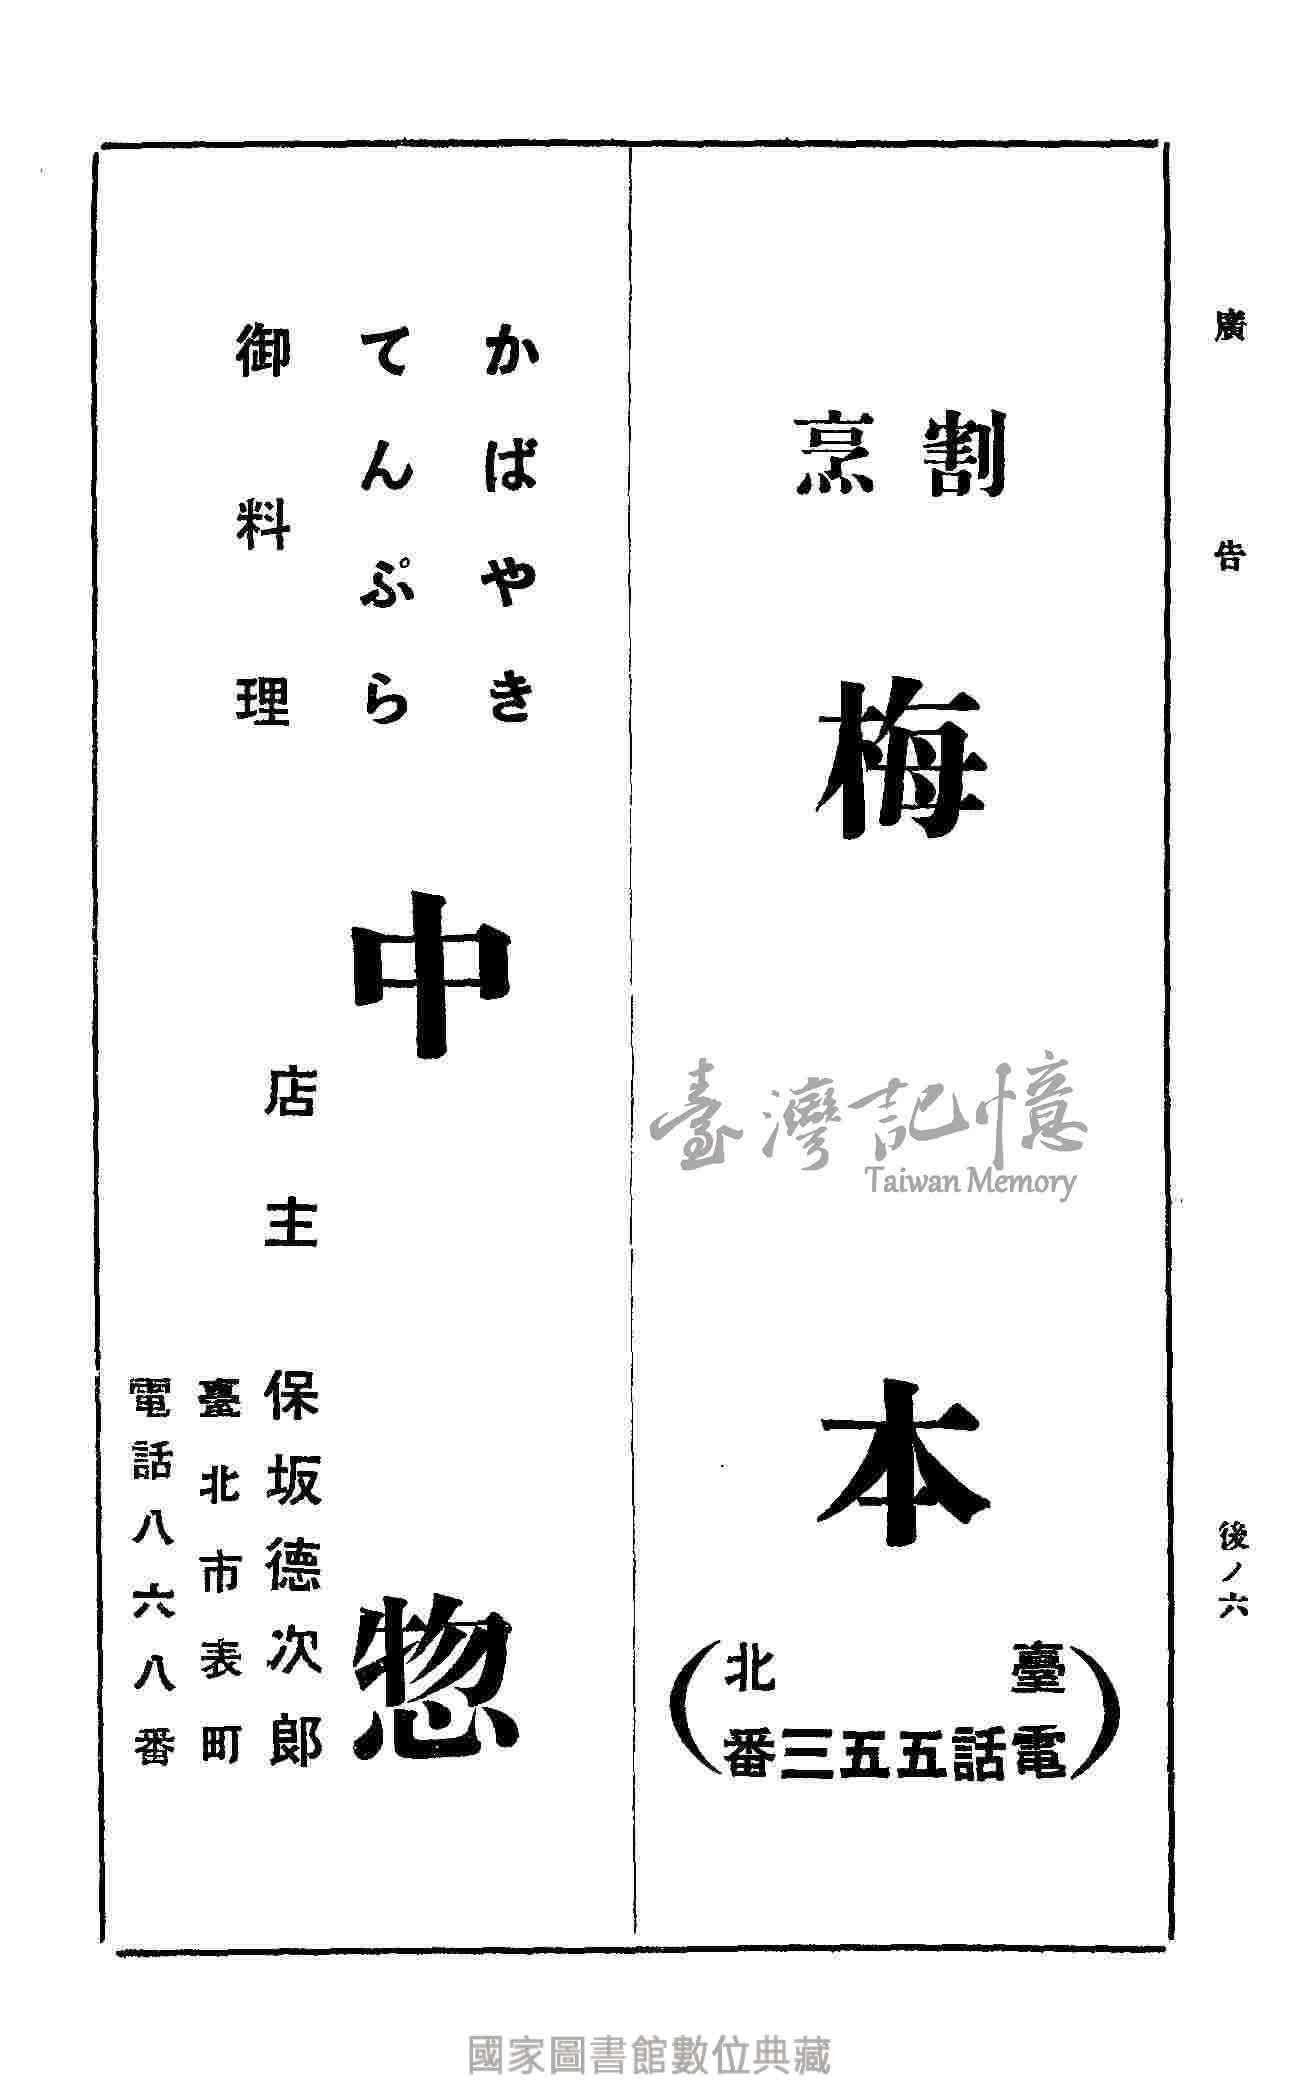 廣告
後ノ六
割烹
梅本
臺北
電話五五三番
かばやき
てんぷら
御料理
中惣
店主 保坂德次郎
臺北市表町
電話八六八番
臺灣記憶
Taiwan Memory
國家圖書館數位典藏